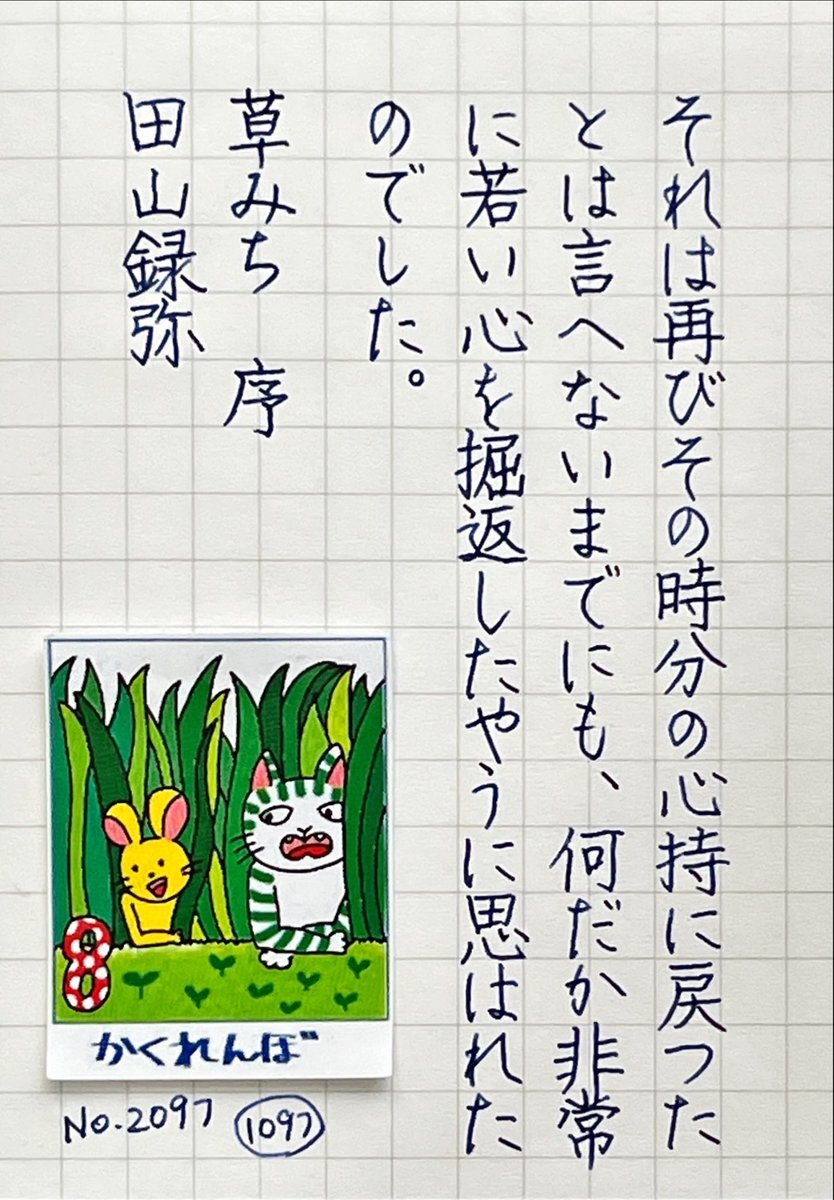 それは再びその時分の心持に戻つた
とは言へないまでにも、何だか非常
に若い心を掘返したやうに思はれた
のでした。
草みち 序
田山録弥
8
かくれんぼ
No.2097 1097